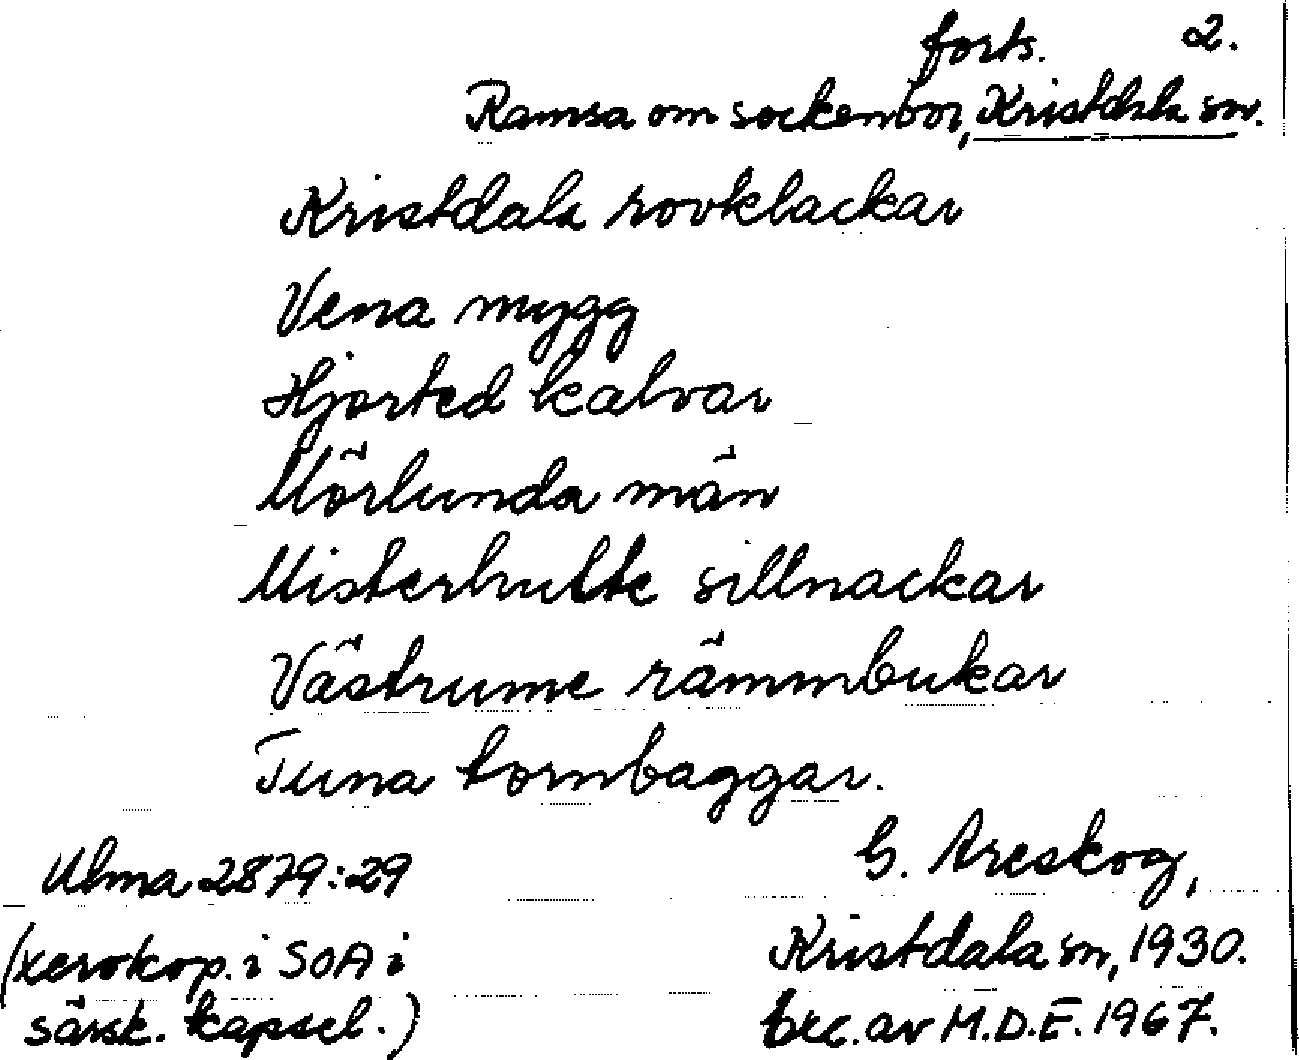 forts. 2.
Ramsa om sockenbor, Kristdala sn.
Kristdala rovklackar
Vena mygg
Hjorted kalvar
Mörlunda män
Misterhulte sillnackar
Västrume rämmbukar
Tuna tornbaggar.
Ulma 2879:29
G. Areskog,
(xerokop. i SOA i
Kristdala sn, 1930.
särsk. kapsel.)
exc. av M.D.E. 1967.